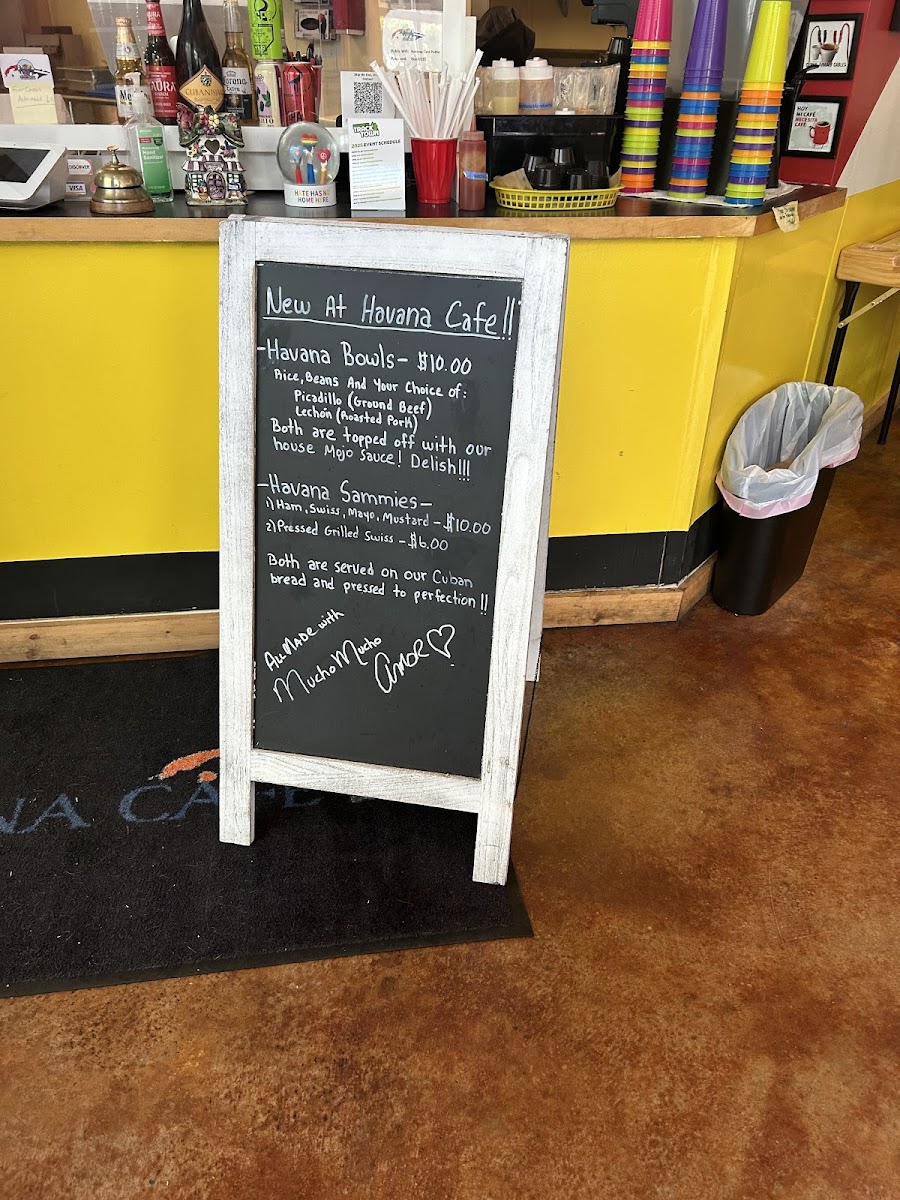 New At Havana Cafe!!
-Havana Bowls- $10.00
Rice, Beans And Your Choice of:
Picadillo (Ground Beef)
Lechón (Roasted Pork)
Both are topped off with our
house Mojo Sauce! Delish!!!
-Havana Sammies-
1) Ham, Swiss, Mayo, Mustard - $10.00
2) Pressed Grilled Swiss - $6.00
Both are served on our Cuban
bread and pressed to perfection!!
All MADE with
Mucho Mucho
Amor
HATE HAS NO
HOME HERE
2025 EVENT SCHEDULE
DISCOVER
VISA
Corona
Extra
HOY
MI CAFÉ
NECESITA
CAFÉ
NA CAFE